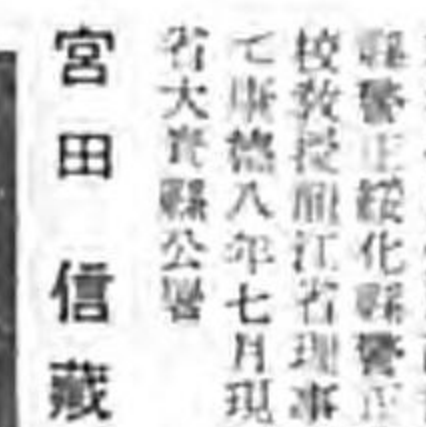 縣警正綏化縣警正
校教授龍江省理事
て康德八年七月現
省大賚縣公署
宮田信藏